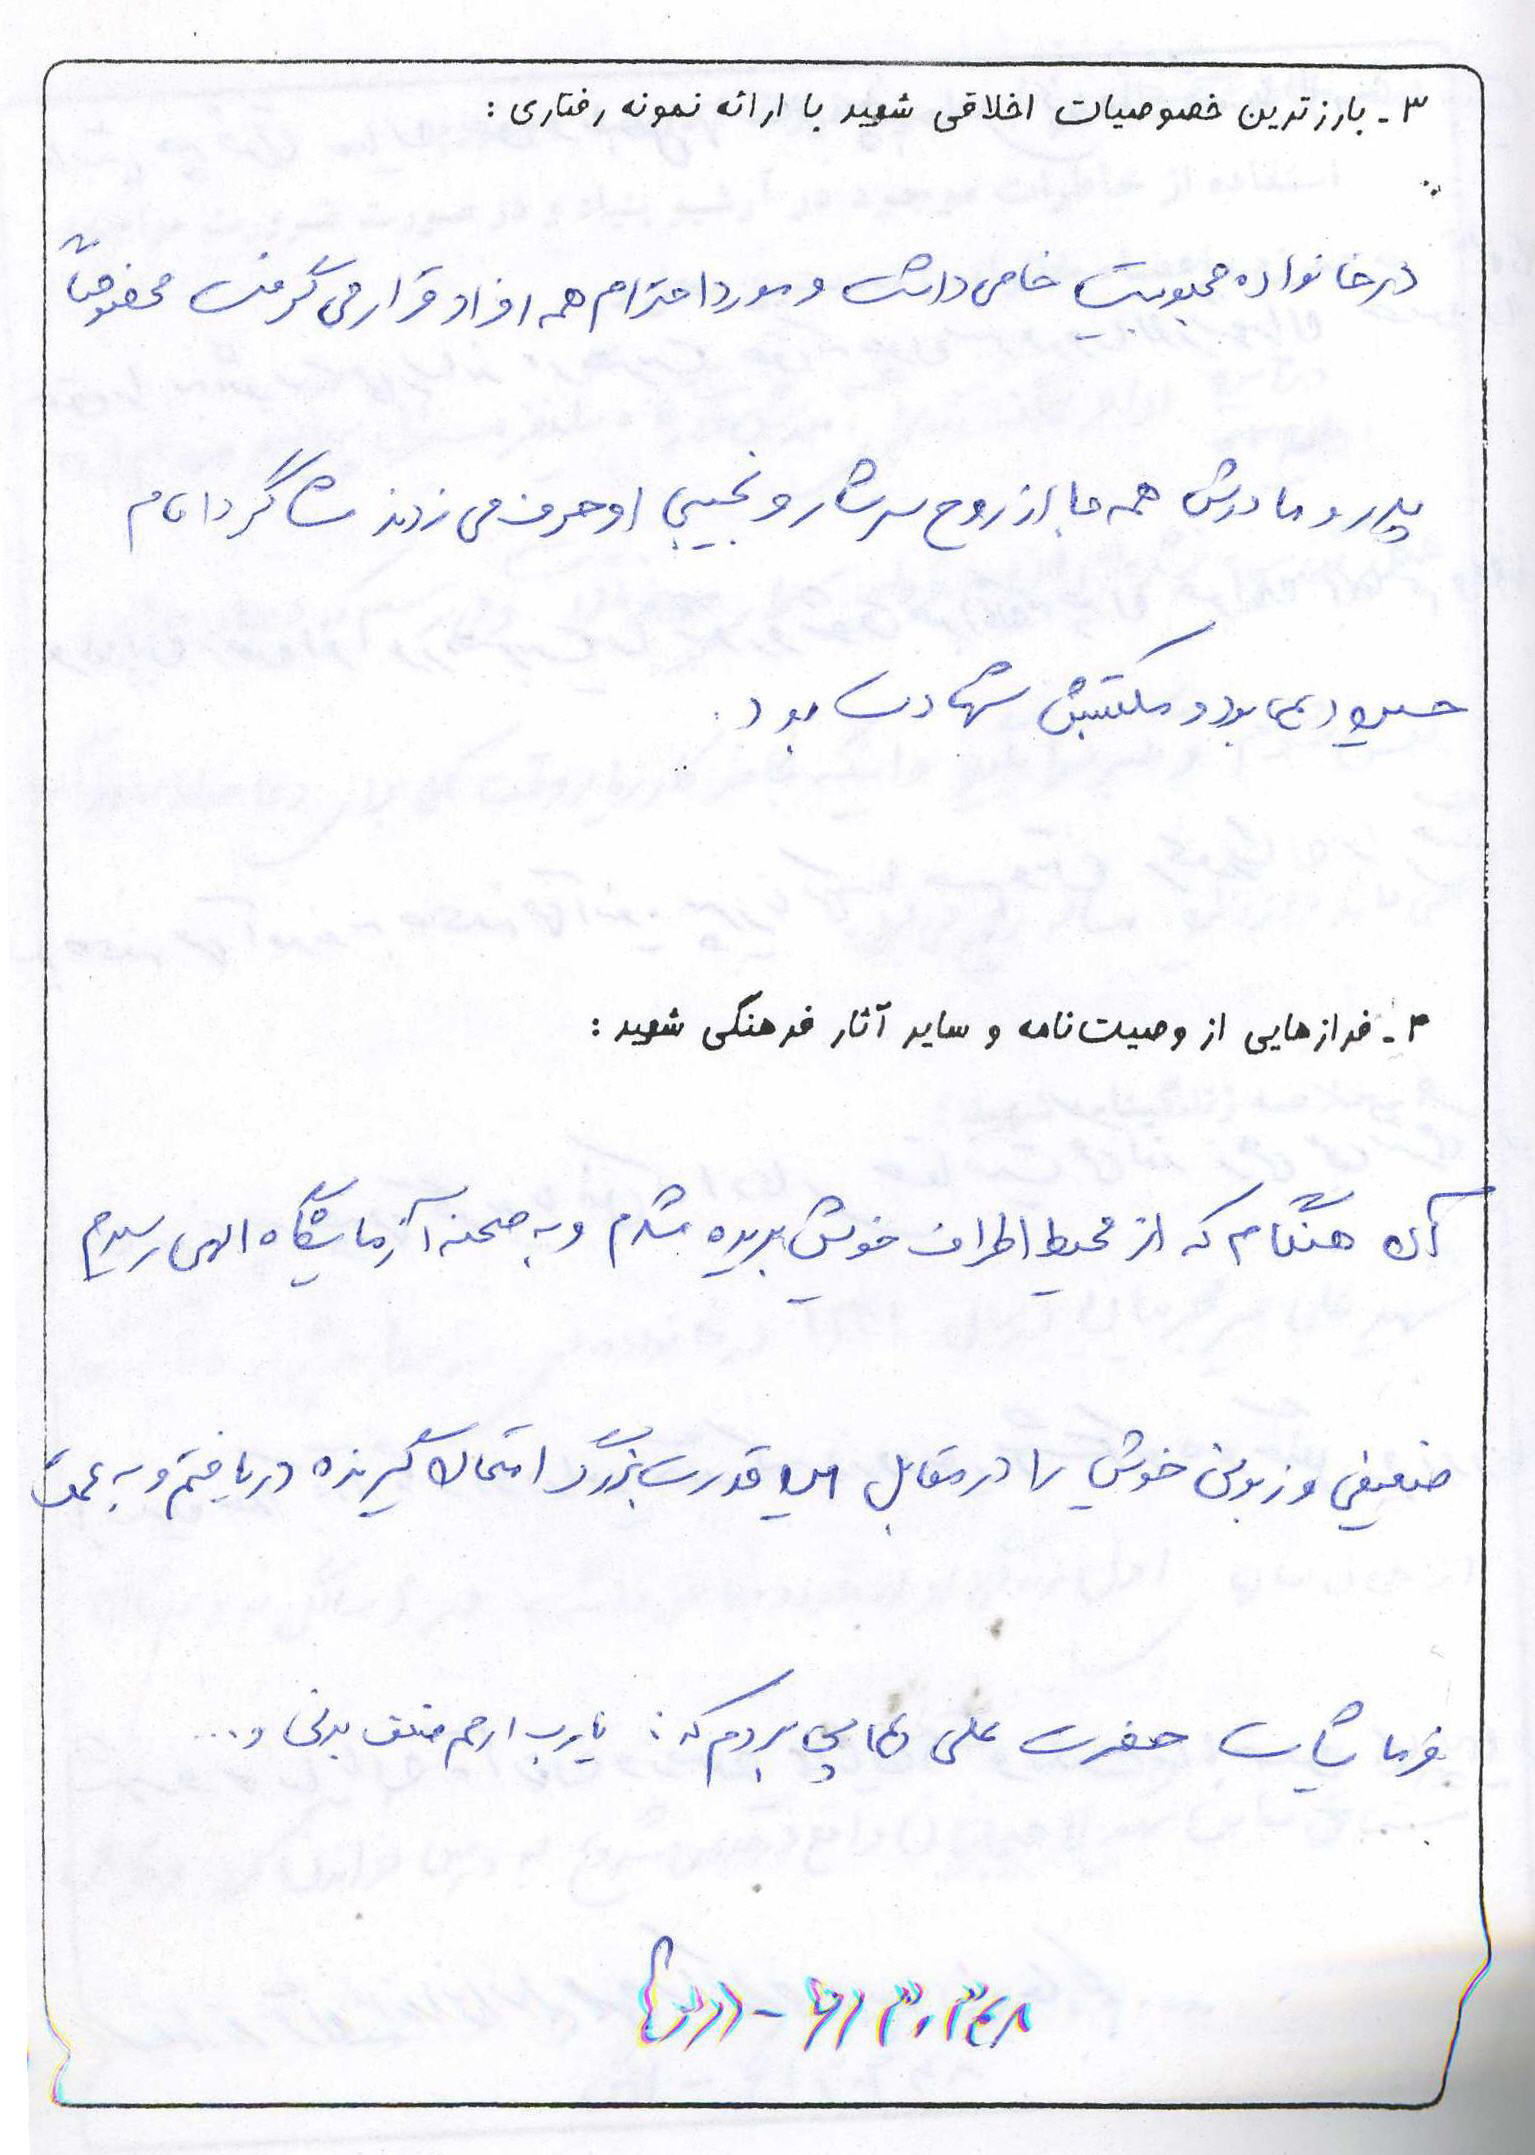 ۳- بارزترین خصوصیات اخلاقی شهید با ارائه نمونه رفتاری :
در خانواده محبوبیت خاصی داشت و مورد احترام همه افراد قرار می گرفت مخصوصاً
پدر و مادرش همه جا از روح سرشار و نجیبی او حرف می زدند شاگرد امام
حسین (ع) بود و مکتبش شهادت بود.
۴- فرازهایی از وصیت‌نامه و سایر آثار فرهنگی شهید :
آن هنگام که از محیط اطراف خویش بریده شدم و به صحنه آزمایشگاه الهی رسیدم
ضعیفی و زبونی خویش را در مقابل این قدرت بزرگ امتحان گیرنده دریافتم و به عمق
فرمایشات حضرت علی (ع) پی بردم که : یا رب ارحم ضعف بدنی و ...